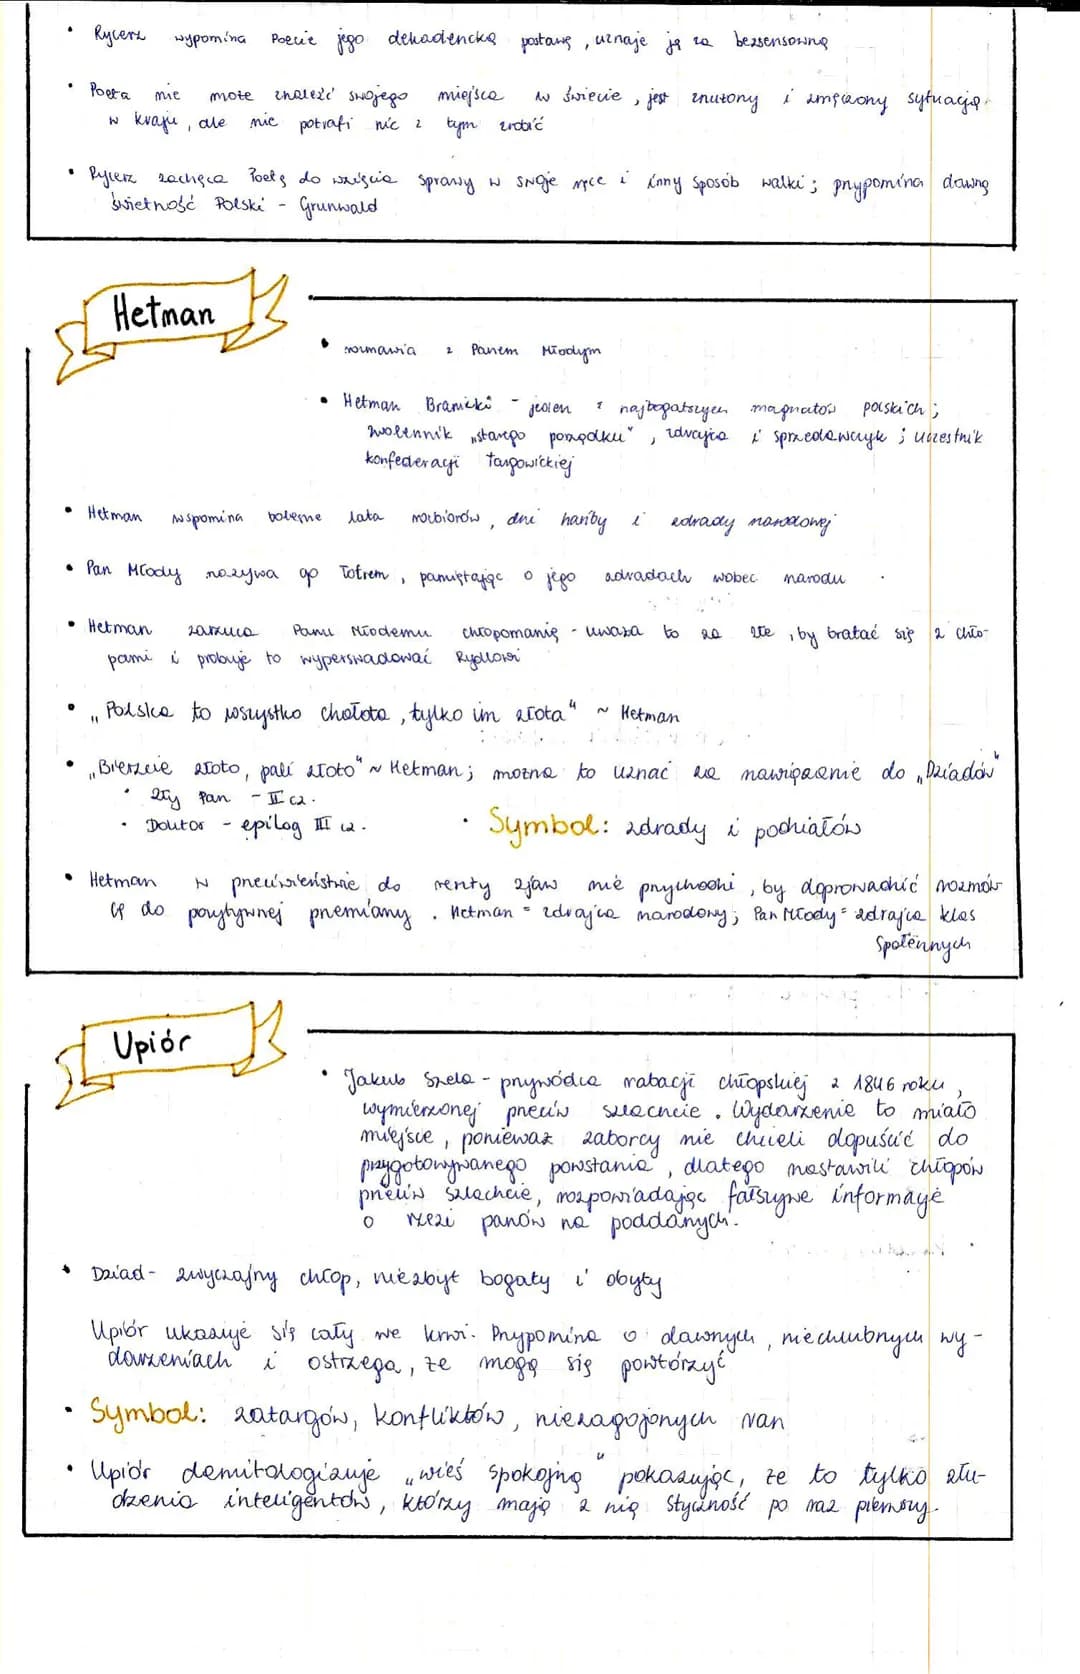 • Rycerz wypomina Poecie jego dekadencką postawę, uznaje ją za bezsensowną
• Poeta nie może znaleźć swojego miejsca w świecie, jest znużony i zmęczony sytuacją
w kraju, ale nie potrafi nic z tym zrobić
• Rycerz zachęca Poetę do wzięcia sprawy w swoje ręce i inny sposób walki; przypomina dawną
świetność Polski - Grunwald
Hetman
• rozmawia z Panem Młodym
• Hetman Branicki - jeden z najbogatszych magnatów polskich;
zwolennik „starego porządku", zdrajca i sprzedawczyk; uczestnik
konfederacji Targowickiej
• Hetman wspomina bolesne lata rozbiorów, dni hańby i zdrady narodowej
• Pan Młody nazywa go łotrem, pamiętając o jego zdradach wobec narodu.
• Hetman zarzuca Panu Młodemu chłopomanię - uważa to za złe, by bratać się z chło-
pami i próbuje to wyperswadować Rydlowi
• „Polska to wszystko chołota, tylko im złota" ~ Hetman
• „Bierzcie złoto, pali złoto" ~ Hetman; można to uznać za nawiązanie do „Dziadów"
• Zły Pan - II cz.
• Doktor - epilog III cz.
• Symbol: zdrady i podziałów
• Hetman w przeciwieństwie do reszty zjaw nie przychodzi, by doprowadzić rozmów-
cę do pozytywnej przemiany. Hetman = zdrajca narodowy; Pan Młody = zdrajca klas
społecznych
Upiór
• Jakub Szela - przywódca rabacji chłopskiej z 1846 roku,
wymierzonej przeciw szlachcie. Wydarzenie to miało
miejsce, ponieważ zaborcy nie chcieli dopuścić do
przygotowywanego powstania, dlatego nastawili chłopów
przeciw szlachcie, rozpowiadając fałszywe informacje
o rzezi panów na poddanych.
• Dziad - zwyczajny chłop, niezbyt bogaty i obyty
Upiór ukazuje się cały we krwi. Przypomina o dawnych, niechlubnych wy-
darzeniach i ostrzega, że mogą się powtórzyć
• Symbol: zatargów, konfliktów, niezagojonych ran
• Upiór demitologizuje „wieś spokojną" pokazując, że to tylko złu-
dzenia inteligentów, którzy mają z nią styczność po raz pierwszy.